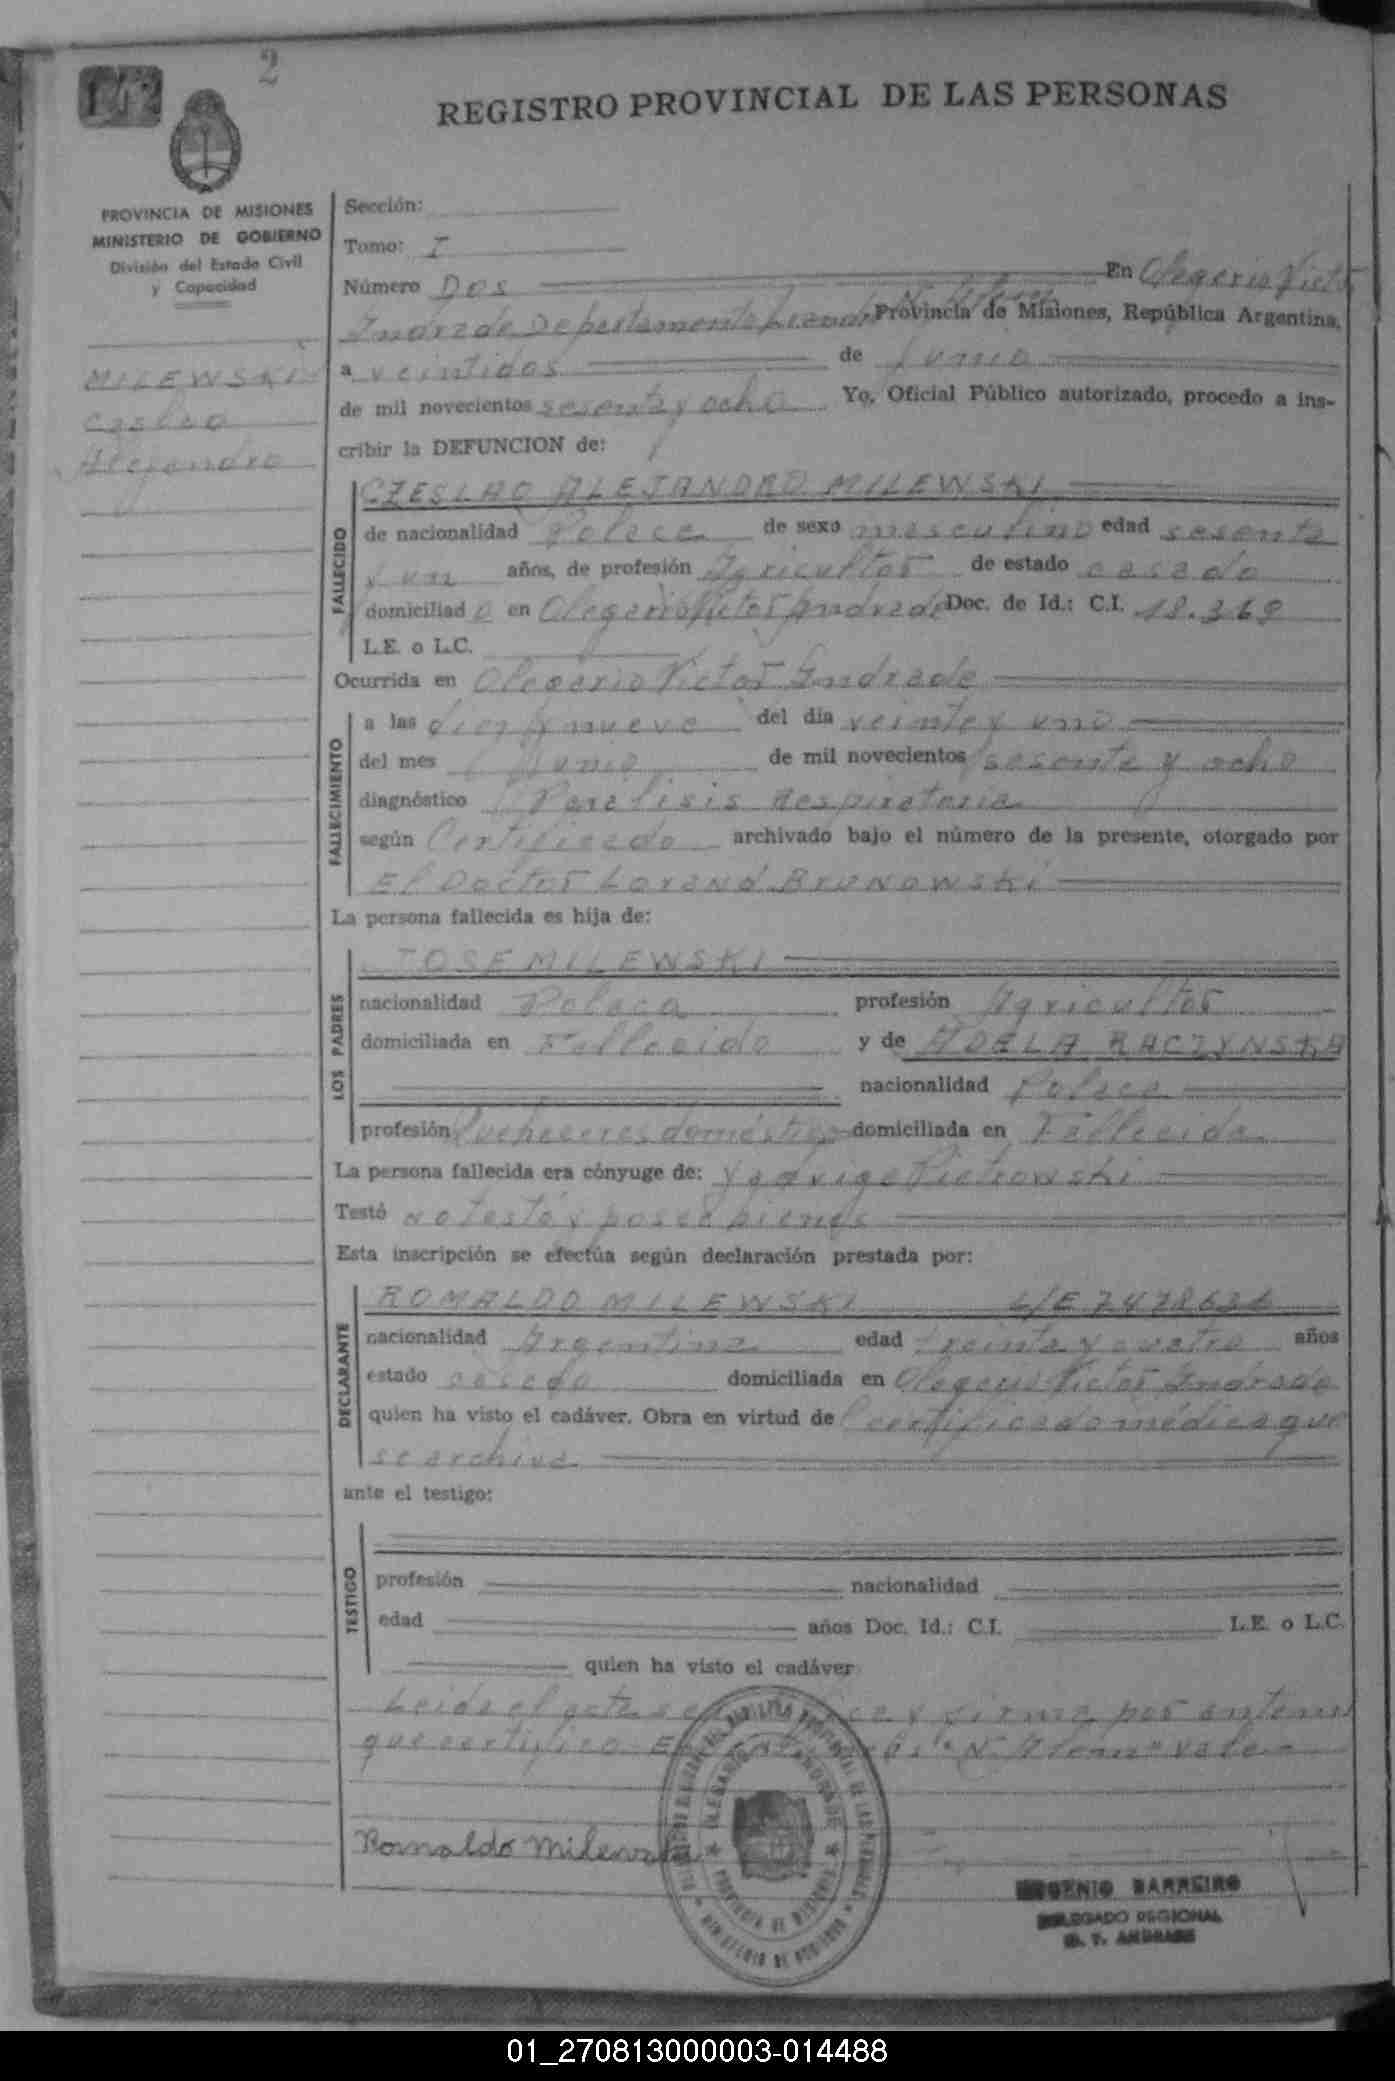 2
REGISTRO PROVINCIAL DE LAS PERSONAS
PROVINCIA DE MISIONES
MINISTERIO DE GOBIERNO
División del Estado Civil
y Capacidad
MILEWSKI
Czslao
Alejandro
Sección:
Tomo: I
Número Dos En Olegario Victor
Andrade Departamento Provincia de Misiones, República Argentina,
a veintidos de Junio
de mil novecientos sesenta y ocho Yo, Oficial Público autorizado, procedo a ins-
cribir la DEFUNCION de:
FALLECIDO
CZESLAO ALEJANDRO MILEWSKI
de nacionalidad Polaca de sexo masculino edad sesenta
y un años, de profesión Agricultor de estado casado
domiciliado en Olegario Victor Andrade Doc. de Id.: C.I. 18.369
L.E. o L.C.
Ocurrida en Olegario Victor Andrade
FALLECIMIENTO
a las diez y nueve del día veinte y uno
del mes Junio de mil novecientos sesenta y ocho
diagnóstico Parálisis Respiratoria
según Certificado archivado bajo el número de la presente, otorgado por
El Doctor Lorand Brunowski
La persona fallecida es hija de:
LOS PADRES
JOSE MILEWSKI
nacionalidad Polaca profesión Agricultor
domiciliada en Fallecido y de ADELA RACZYNSKA
nacionalidad Polaca
profesión Quehaceres domésticos domiciliada en Fallecida
La persona fallecida era cónyuge de: Ygdviga Pietrowski
Testó No testó y posee bienes
Esta inscripción se efectúa según declaración prestada por:
DECLARANTE
ROMALDO MILEWSKI L/E 7478636
nacionalidad Argentina edad treinta y cuatro años
estado casado domiciliada en Olegario Victor Andrade
quien ha visto el cadáver. Obra en virtud de certificado médico que
se archiva
ante el testigo:
TESTIGO
profesión nacionalidad
edad años Doc. Id.: C.I. L.E. o L.C.
quien ha visto el cadáver
Leida el acta se y firma por ante mi
que certifico. "N. Alem" vale.-
Romaldo Milewski
EUGENIO BARREIRO
DELEGADO REGIONAL
O. V. ANDRADE
01_270813000003-014488